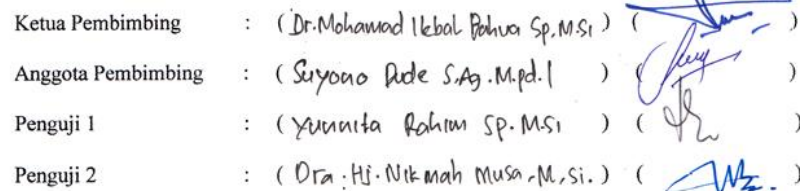 Ketua Pembimbing : (Dr.Mohamad Ikbal Bahua Sp,M.Si ) ( )
Anggota Pembimbing : ( Suyono Dude S.Ag.M.pd.I ) ( )
Penguji 1 : ( Yunnita Rahim SP.M.Si ) ( )
Penguji 2 : ( Dra.Hj.Nikmah Musa,M,Si. ) ( )